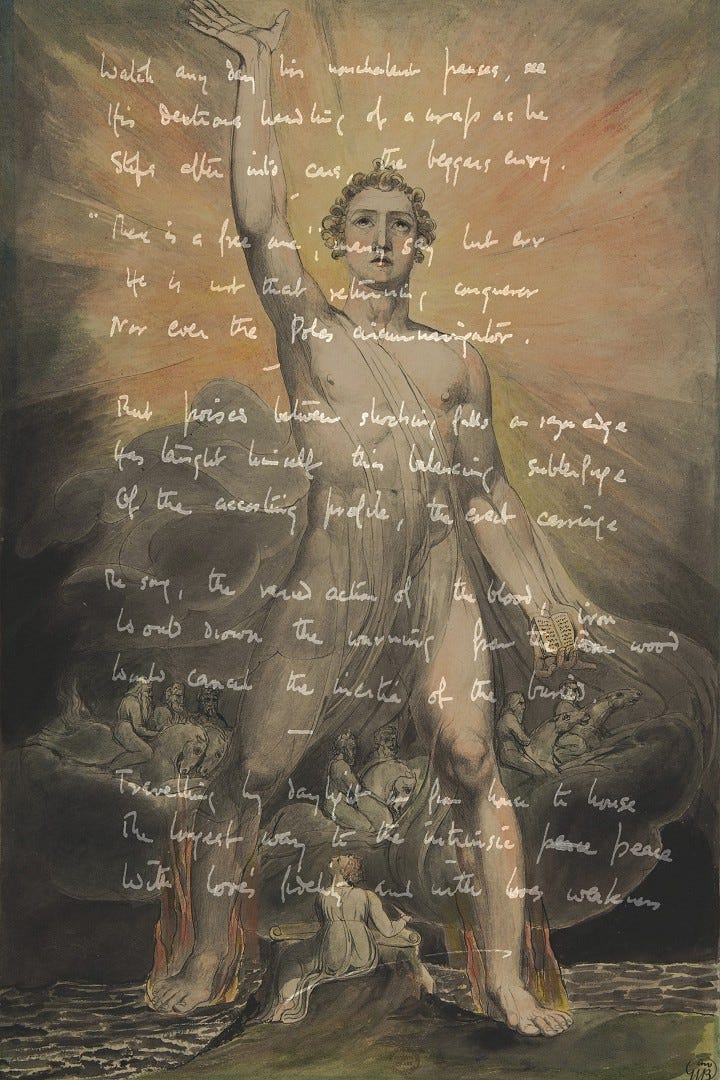 Watch any day his nonchalant pauses, see
His dextrous handling of a wrap as he
Steps after into cars, the beggars envy.
"There is a free one", many say but err
He is not that returning conqueror
Nor ever the Poles circumnavigator.
But poised between shocking falls on razor edge
Has taught himself this balancing subterfuge
Of the accosting profile, the erect carriage
The song, the varied action of the blood,
Would drown the warning from the iron wood
Would cancel the inertia of the buried
Travelling by daylight on from house to house
The longest way to the intrinsic peace
With love's fidelity and with loves weakness